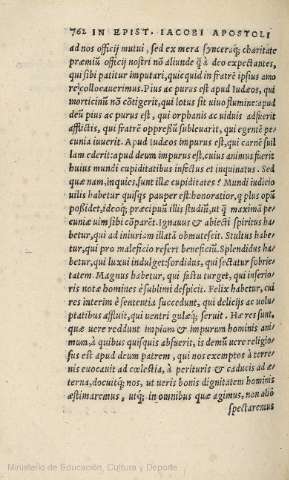 762 IN EPIST. IACOBI APOSTOLI
ad nos officij mutui, sed ex mera synceraq; charitate
præmiũ officij nostri nõ aliunde q̃ à deo expectantes,
qui sibi patitur imputari, quicquid in fratrẽ ipsius amo
re collocauerimus. Pius ac purus est apud Iudæos, qui
morticinũ nõ cõtigerit, qui lotus sit uiuo flumine: apud
deũ pius ac purus est, qui orphanis ac uiduis adfuerit
afflictis, qui fratrẽ oppressũ subleuarit, qui egentẽ pe-
cunia iuuerit. Apud Iudæos impurus est, qui carnẽ suil
lam ederit: apud deum impurus est, cuius animus fuerit
huius mundi cupiditatibus infectus et inquinatus. Sed
quæ nam, inquies, sunt illæ cupiditates? Mundi iudicio
uilis habetur quisq̃s pauper est: honoratior, q plus opũ
poßidet, ideoq́; præcipuũ illis studiũ, ut q̃ maximã pe-
cuniæ uim sibi cõparẽt. Ignauus & abiecti spiritus ha
betur, qui ad iniuriam illatã obmutescit. Stultus habe-
tur, qui pro maleficio refert beneficiũ. Splendidus ha-
betur, qui luxui indulget: sordidus, qui sectatur sobrie-
tatem. Magnus habetur, qui fastu turget, qui inferio-
ris notæ homines è sublimi despicit. Felix habetur, cui
res interim è sententia succedunt, qui delicijs ac uolu-
ptatibus affluit, qui uentri gulæq́; seruit. Hæ res sunt,
quæ uere reddunt impium & impurum hominis ani-
mum, à quibus quisquis abfuerit, is demũ uere religio-
sus est apud deum patrem, qui nos exemptos à terre-
nis euocauit ad cœlestia, à perituris & caducis ad æ-
terna, docuitq́; nos, ut ueris bonis dignitatem hominis
æstimaremus, utq́; in omnibus quæ agimus, non aliò
spectaremus
Ministerio de Educación, Cultura y Deporte